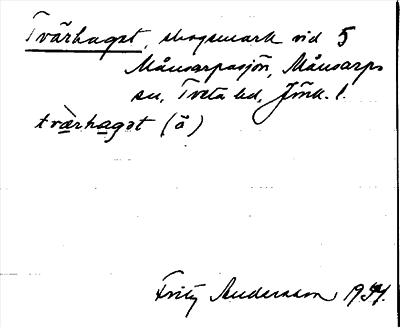 Tvärhagat, skogsmark vid 5
Månsarpasjön, Månsarps
sn, Tveta hd, Jönk. l.
tvὰrhagat (ȧ)
Fritz Andersson 1934.